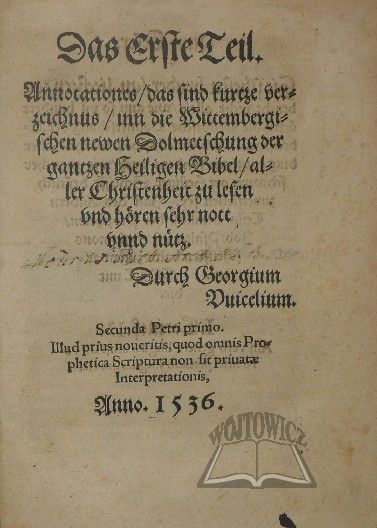 Das Erste Teil.
Annotationes/das sind kurtze ver⸗
zeichnus/ inn die Wittembergi⸗
schen newen Dolmetschung der
gantzen Heiligen Bibel/al⸗
ler Christenheit zu lesen
vnd hören sehr nott
vnnd nütz.
Durch Georgium
Vuicelium.
Secunda Petri primo.
Illud prius noueritis, quod omnis Pro⸗
phetica Scriptura non fit priuatæ
Interpretationis,
Anno. 1536.
WÓJTOWICZ